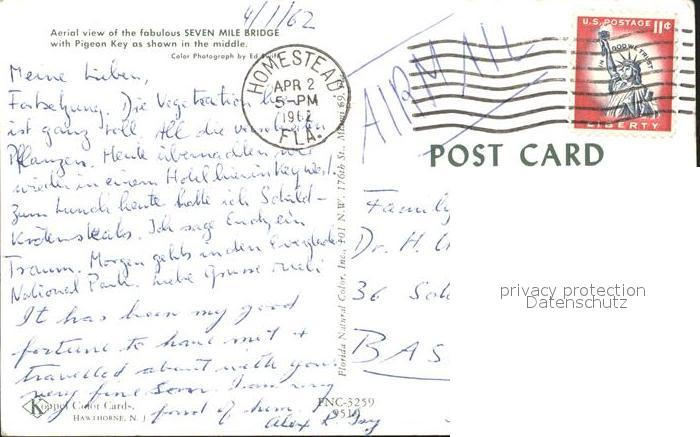 4/1/62
Aerial view of the fabulous SEVEN MILE BRIDGE
with Pigeon Key as shown in the middle.
Color Photograph by Ed
HOMESTEAD
APR 2
5-PM
1962
FLA.
AIRMAIL
U.S. POSTAGE 11¢
IN GOD WE TRUST
LIBERTY
POST CARD
Meine Lieben,
Fortsetzung. Die Vegetation
ist ganz toll. All die
Pflanzen. Heute übernachten wir
wieder in einem Hotel hier in Key West.
Zum Lunch heute hatte ich Schild-
krötensteaks. Ich sage Euch, ein
Traum. Morgen gehts in den Everglades
National Park. Liebe Grüsse
It has been my good
fortune to have met +
travelled about with your
very fine son. I am very
fond of him.
Alex
Family
Dr. H.
36
BAS
privacy protection
Datenschutz
Florida Natural Color, Inc., 101 N.W. 176th St., Miami 69,
Koppel Color Cards,
HAWTHORNE, N. J.
FNC-3259
9510